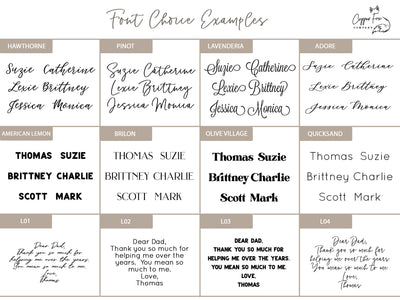 Font Choice Examples
Copper Fox
COMPANY
HAWTHORNE
PINOT
LAVENDERIA
ADORE
Suzie Catherine
Lexie Brittney
Jessica Monica
Suzie Catherine
Lexie Brittney
Jessica Monica
Suzie Catherine
Lexie Brittney
Jessica Monica
Suzie Catherine
Lexie Brittney
Jessica Monica
AMERICAN LEMON
BRILON
OLIVE VILLAGE
QUICKSAND
THOMAS SUZIE
BRITTNEY CHARLIE
SCOTT MARK
THOMAS SUZIE
BRITTNEY CHARLIE
SCOTT MARK
Thomas Suzie
Brittney Charlie
Scott Mark
Thomas Suzie
Brittney Charlie
Scott Mark
L01
L02
L03
L04
Dear Dad,
Thank you so much for
helping me over the years.
You mean so much to me.
Love,
Thomas
Dear Dad,
Thank you so much for
helping me over the
years. You mean so much
to me.
Love,
Thomas
DEAR DAD,
THANK YOU SO MUCH FOR
HELPING ME OVER THE YEARS.
YOU MEAN SO MUCH TO ME.
LOVE,
THOMAS
Dear Dad,
Thank you so much for
helping me over the years.
You mean so much to me.
Love,
Thomas